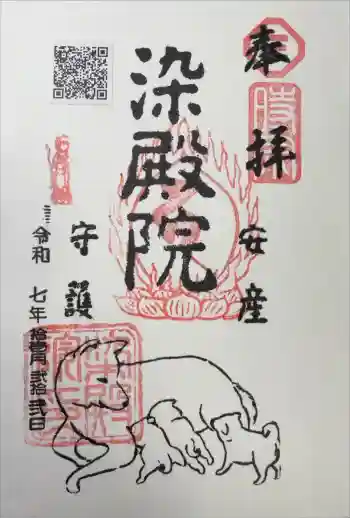 奉拝
安産
染殿院
守護
令和七年拾壱月弐拾弐日